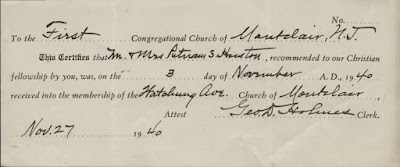 No.
To the First Congregational Church of Montclair, N.J.
This Certifies that Mr. & Mrs Putnam S. Huston, recommended to our Christian
fellowship by you, was, on the 3 day of November A. D., 1940
received into the membership of the Watchung Ave. Church of Montclair
Attest Geo. D. Holmes Clerk.
Nov. 27 1940